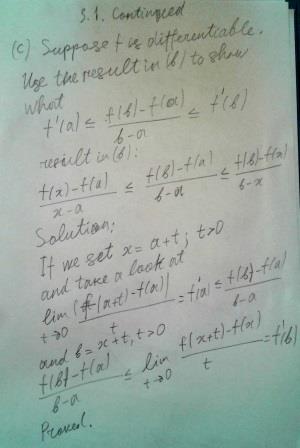 3.1. Continued
(c) Suppose f is differentiable.
Use the result in (b) to show
what
f'(a) ≤ (f(b)-f(a))/(b-a) ≤ f'(b)
result in (b):
(f(x)-f(a))/(x-a) ≤ (f(b)-f(a))/(b-a) ≤ (f(b)-f(x))/(b-x)
Solution:
If we set x = a+t; t>0
and take a look at
lim t→0 (f(a+t)-f(a))/t = f'(a) ≤ (f(b)-f(a))/(b-a)
and b = x+t, t>0
(f(b)-f(a))/(b-a) ≤ lim t→0 (f(x+t)-f(x))/t = f'(b)
Proved.